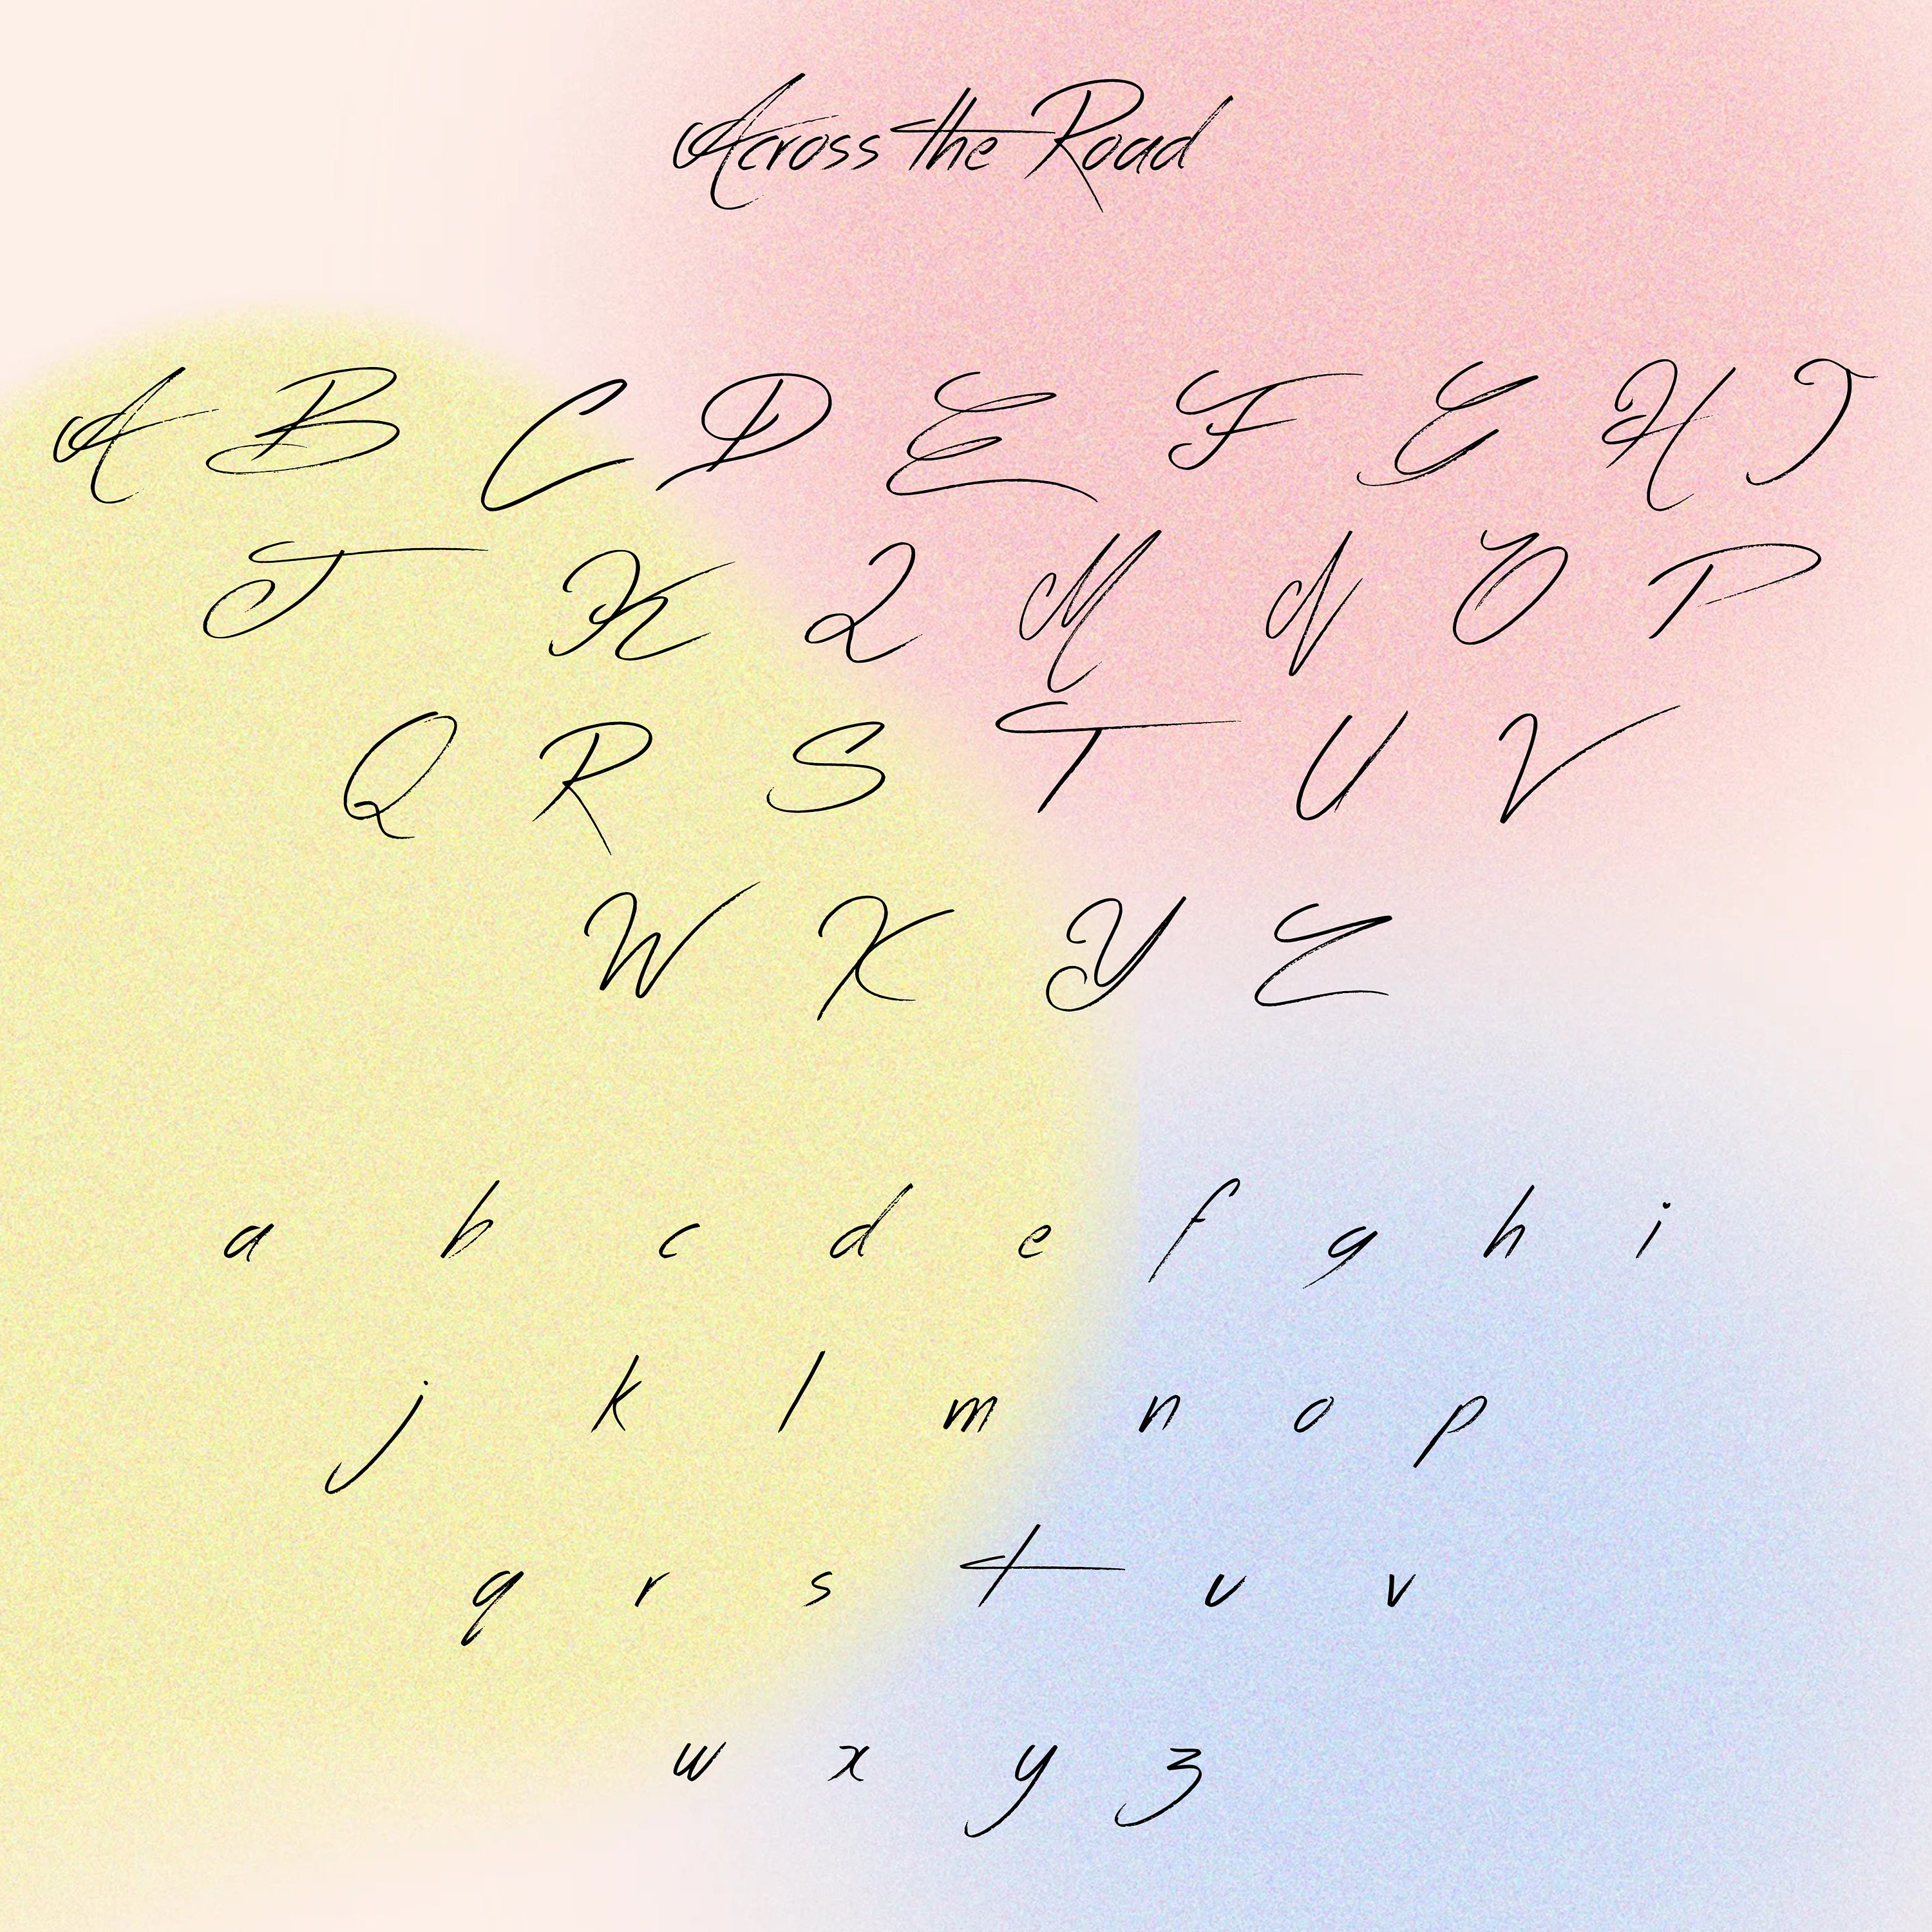 Across the Road
A B C D E F G H I
J K L M N O P
Q R S T U V
W X Y Z
a b c d e f g h i
j k l m n o p
q r s t u v
w x y z